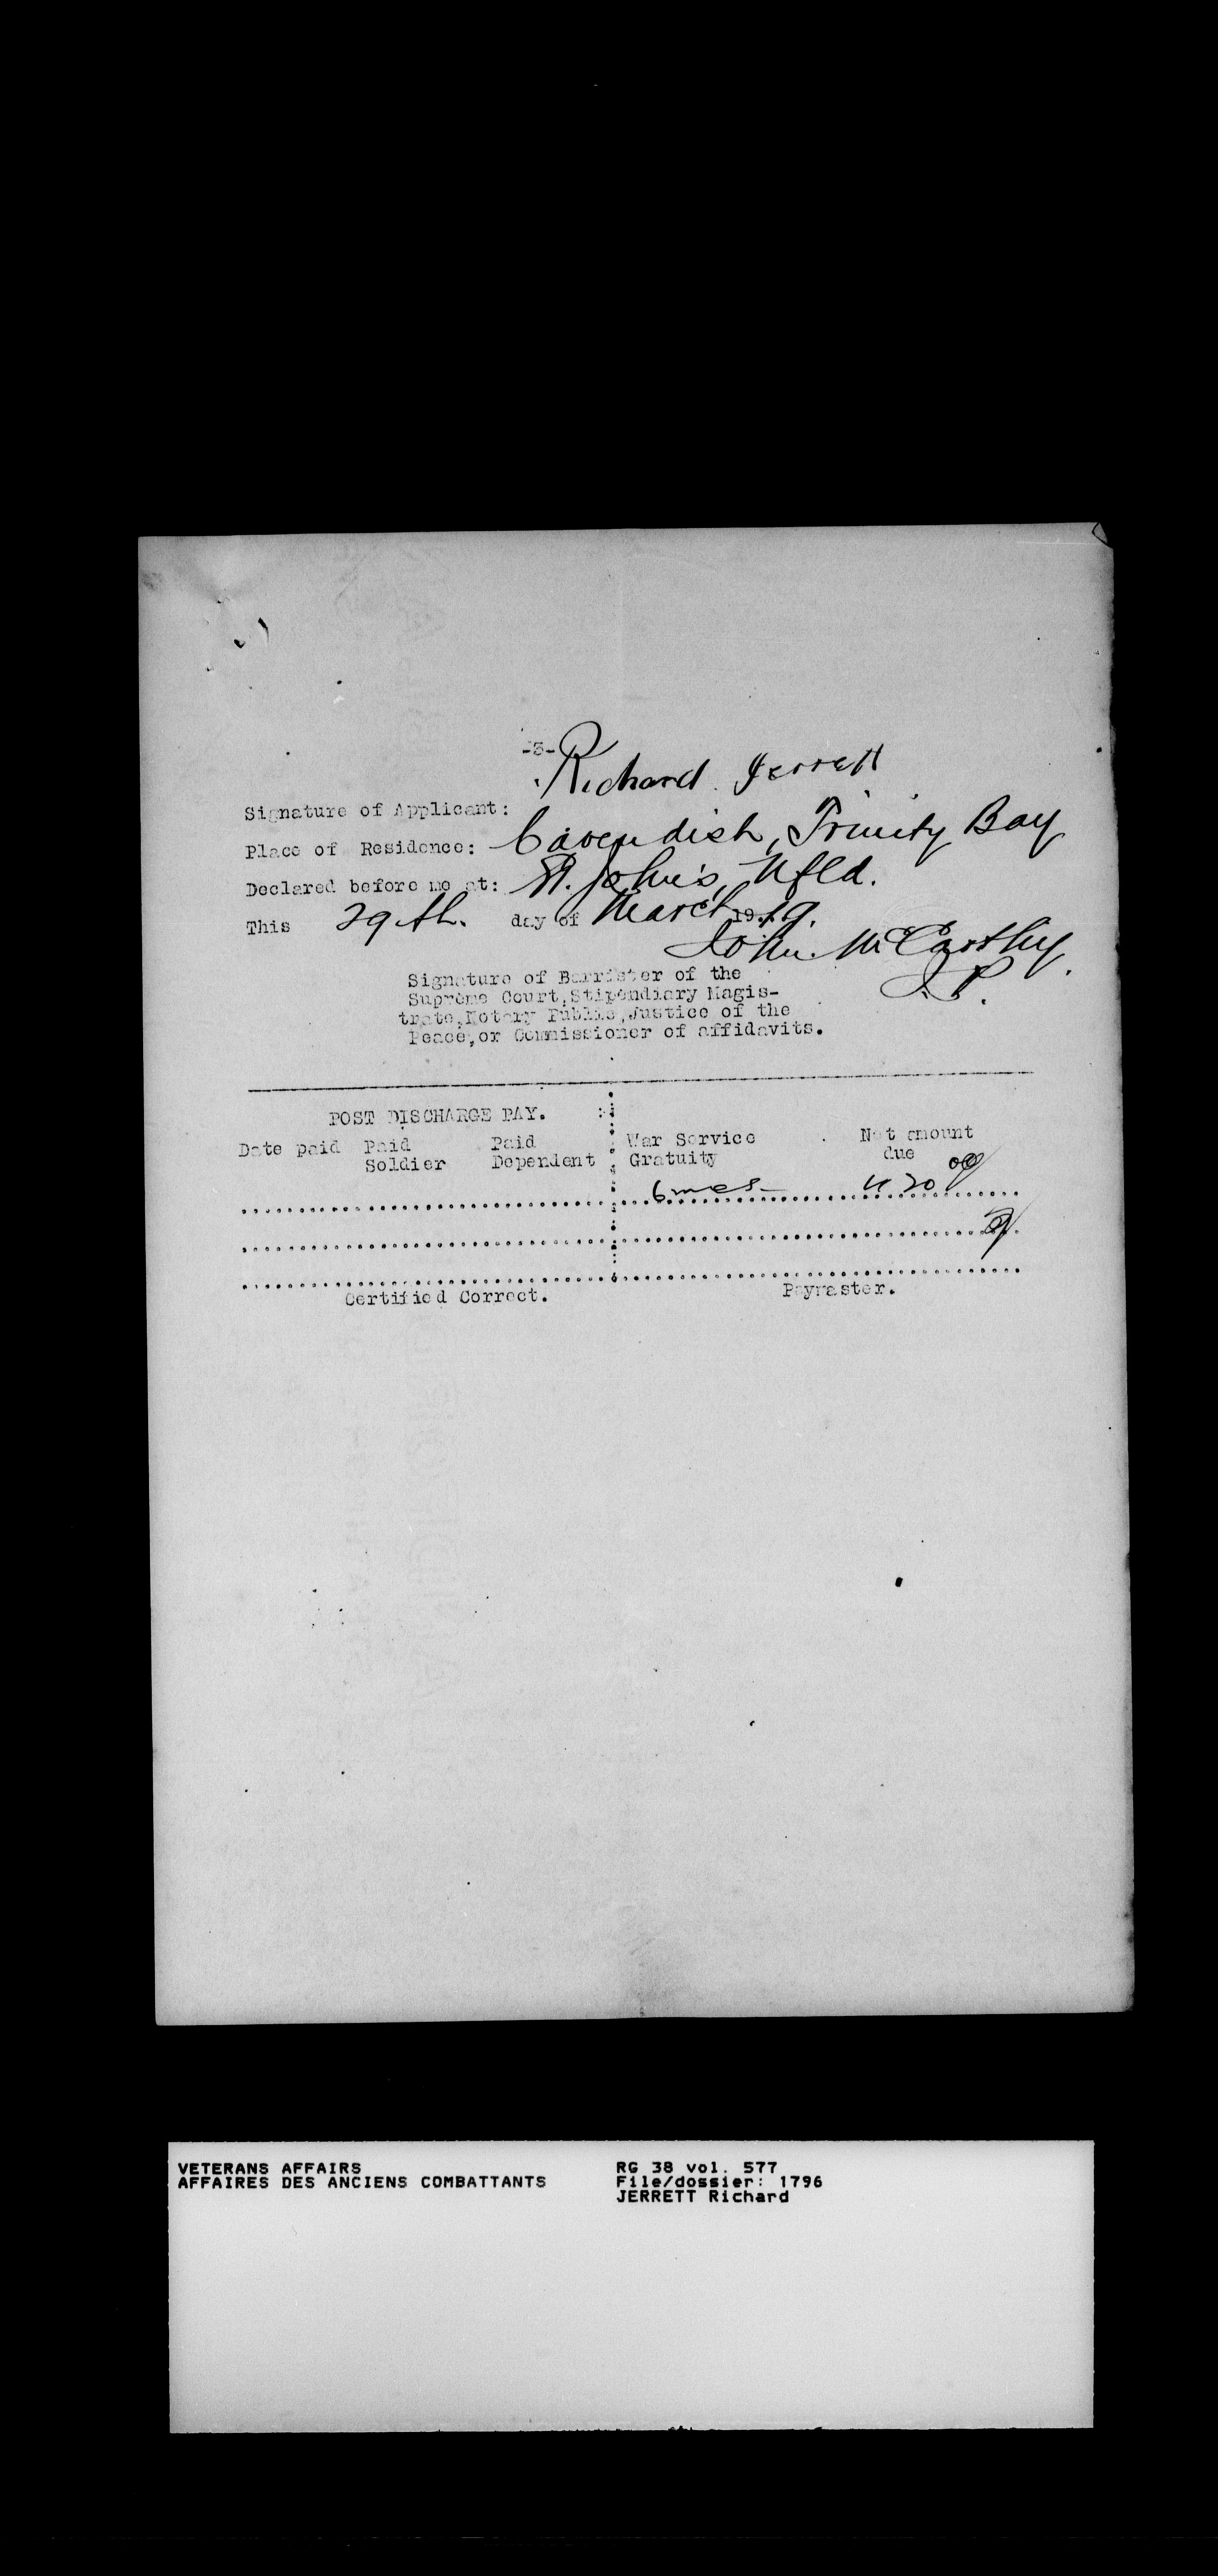 -3-
Signature of Applicant: Richard Jerrett
Place of Residence: Cavendish, Trinity Bay
Declared before me at: St. John's, Nfld.
This 29th. day of March 1919.
John McCarthy
J.P.
Signature of Barrister of the
Supreme Court,Stipendiary Magis-
trate,Notary Public,Justice of the
Peace,or Commissioner of affidavits.
POST DISCHARGE PAY.
Date paid Paid Paid War Service Net amount
Soldier Dependent Gratuity due
6 mos 420 00
Certified Correct. Paymaster.
VETERANS AFFAIRS RG 38 vol. 577
AFFAIRES DES ANCIENS COMBATTANTS File/dossier: 1796
JERRETT Richard